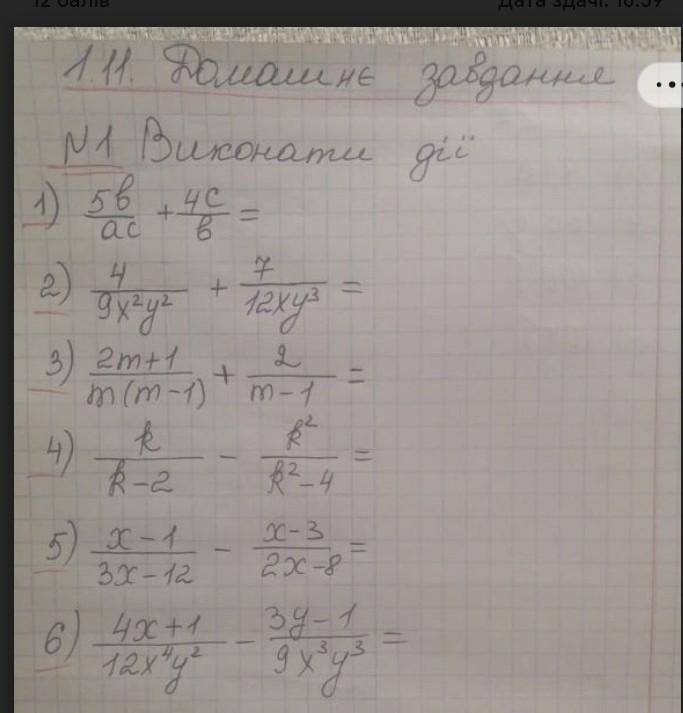 12 балів Дата здачі: 16:59
1.11. Домашнє завдання
N1 Виконати дії
1) 5b/ac + 4c/b =
2) 4/9x²y² + 7/12xy³ =
3) 2m+1/m(m-1) + 2/m-1 =
4) k/k-2 - k²/k²-4 =
5) x-1/3x-12 - x-3/2x-8 =
6) 4x+1/12x⁴y² - 3y-1/9x³y³ =